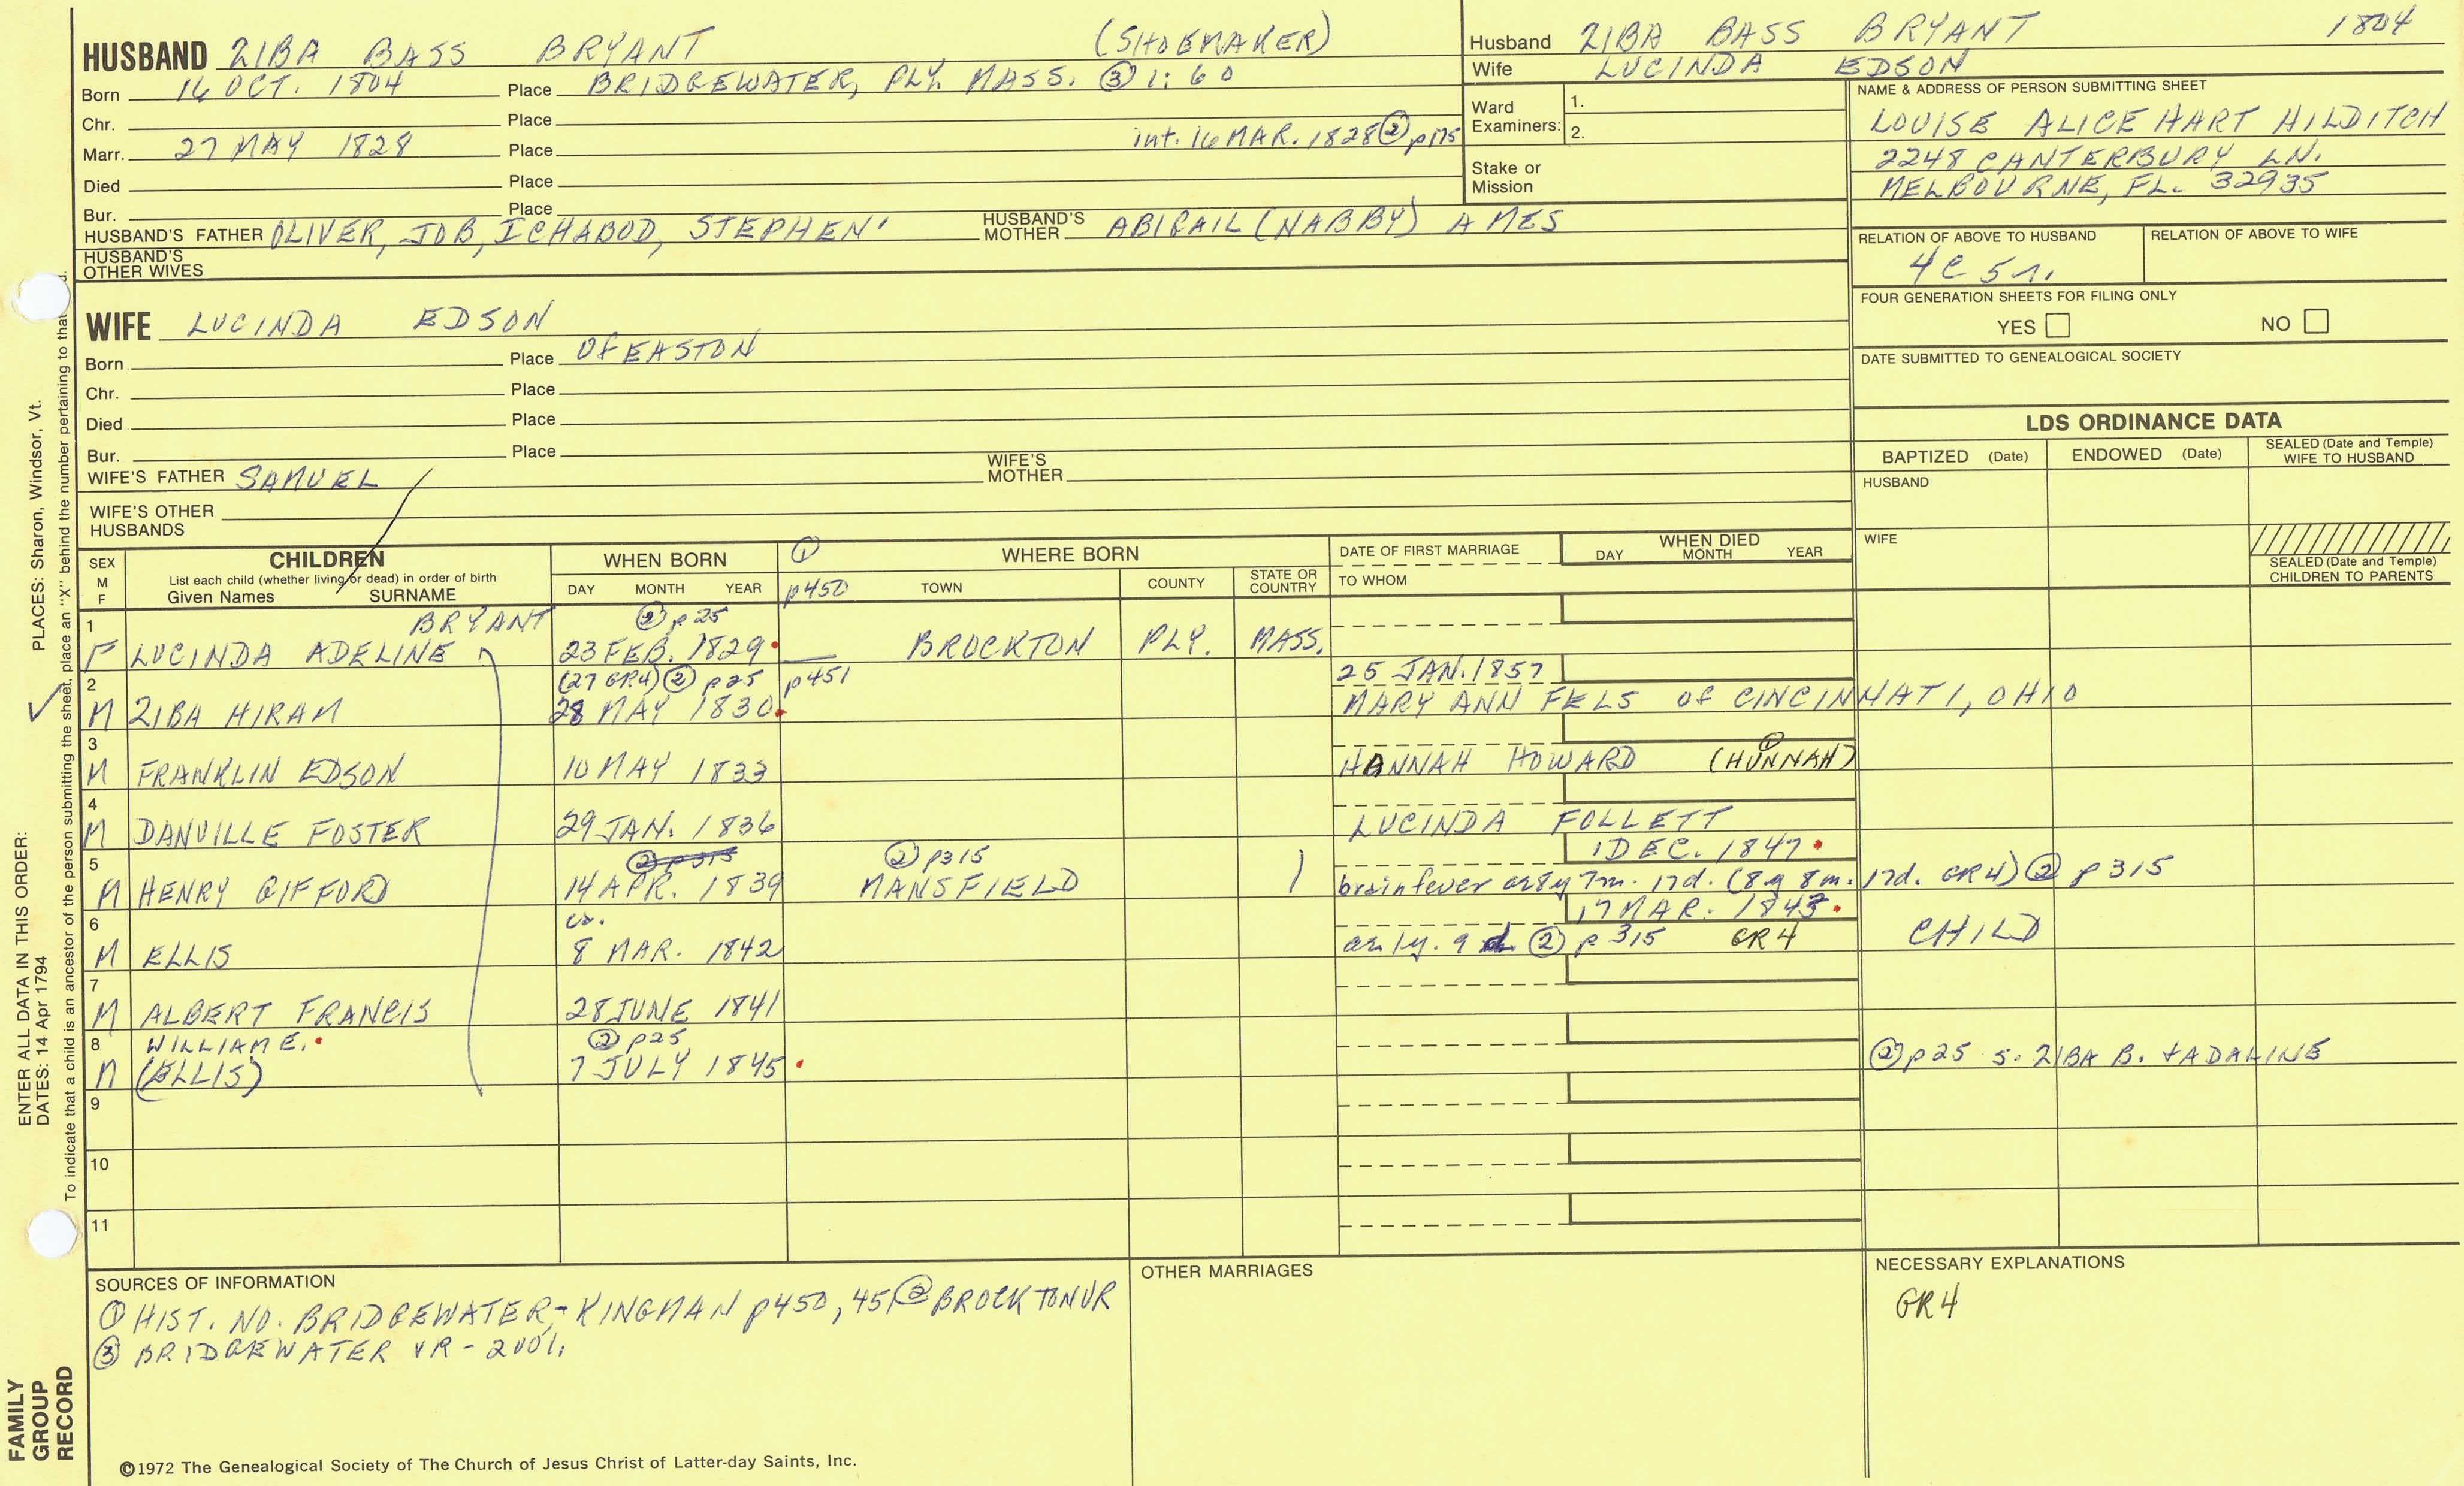 HUSBAND ZIBA BASS BRYANT (SHOEMAKER)
Born 16 OCT. 1804 Place BRIDGEWATER, PLY. MASS. ③ 1:60
Chr. Place
Marr. 27 MAY 1828 Place int. 16 MAR. 1828 ② p175
Died Place
Bur. Place
HUSBAND'S FATHER OLIVER, JOB, ICHABOD, STEPHEN' HUSBAND'S MOTHER ABIGAIL (NABBY) AMES
HUSBAND'S OTHER WIVES
WIFE LUCINDA EDSON
Born Place OF EASTON
Chr. Place
Died Place
Bur. Place
WIFE'S FATHER SAMUEL WIFE'S MOTHER
WIFE'S OTHER HUSBANDS
Husband ZIBA BASS BRYANT 1804
Wife LUCINDA EDSON
Ward Examiners: 1.
2.
Stake or Mission
NAME & ADDRESS OF PERSON SUBMITTING SHEET
LOUISE ALICE HART HILDITCH
2248 CANTERBURY LN.
MELBOURNE, FL. 32935
RELATION OF ABOVE TO HUSBAND RELATION OF ABOVE TO WIFE
4C 5r.
FOUR GENERATION SHEETS FOR FILING ONLY
YES NO
DATE SUBMITTED TO GENEALOGICAL SOCIETY
LDS ORDINANCE DATA
BAPTIZED (Date) ENDOWED (Date) SEALED (Date and Temple) WIFE TO HUSBAND
HUSBAND
WIFE
SEALED (Date and Temple) CHILDREN TO PARENTS
SEX M F CHILDREN WHEN BORN ① WHERE BORN DATE OF FIRST MARRIAGE WHEN DIED
List each child (whether living or dead) in order of birth
Given Names SURNAME DAY MONTH YEAR p450 TOWN COUNTY STATE OR COUNTRY TO WHOM DAY MONTH YEAR
1 BRYANT ② p25
F LUCINDA ADELINE 23 FEB. 1829 BROCKTON PLY. MASS.
2 (27 GR4) ② p25 p451 25 JAN. 1857
M ZIBA HIRAM 28 MAY 1830 MARY ANN FELS OF CINCINNATI, OHIO
3
M FRANKLIN EDSON 10 MAY 1833 HANNAH HOWARD (HUNNAH) ①
4
M DANVILLE FOSTER 29 JAN. 1836 LUCINDA FOLLETT
5 ② p315 ② p315 1 DEC. 1847
M HENRY GIFFORD 14 APR. 1839 MANSFIELD brain fever ae 8y 7m. 17d. (8y 8m. 17d. GR4) ② p315
6 ca. 17 MAR. 1843
M ELLIS 8 MAR. 1842 ae 1y. 9 d. ② p315 GR4 CHILD
7
M ALBERT FRANCIS 28 JUNE 1841
8 WILLIAM E. ② p25
M (ELLIS) 7 JULY 1845 ② p25 s. ZIBA B. + ADALINE
9
10
11
SOURCES OF INFORMATION
① HIST. NO. BRIDGEWATER - KINGMAN p450, 451 ② BROCKTON VR
③ BRIDGEWATER VR - 2 vol.
OTHER MARRIAGES
NECESSARY EXPLANATIONS
GR4
©1972 The Genealogical Society of The Church of Jesus Christ of Latter-day Saints, Inc.
FAMILY GROUP RECORD
ENTER ALL DATA IN THIS ORDER:
DATES: 14 Apr 1794 PLACES: Sharon, Windsor, Vt.
To indicate that a child is an ancestor of the person submitting the sheet, place an "X" behind the number pertaining to that